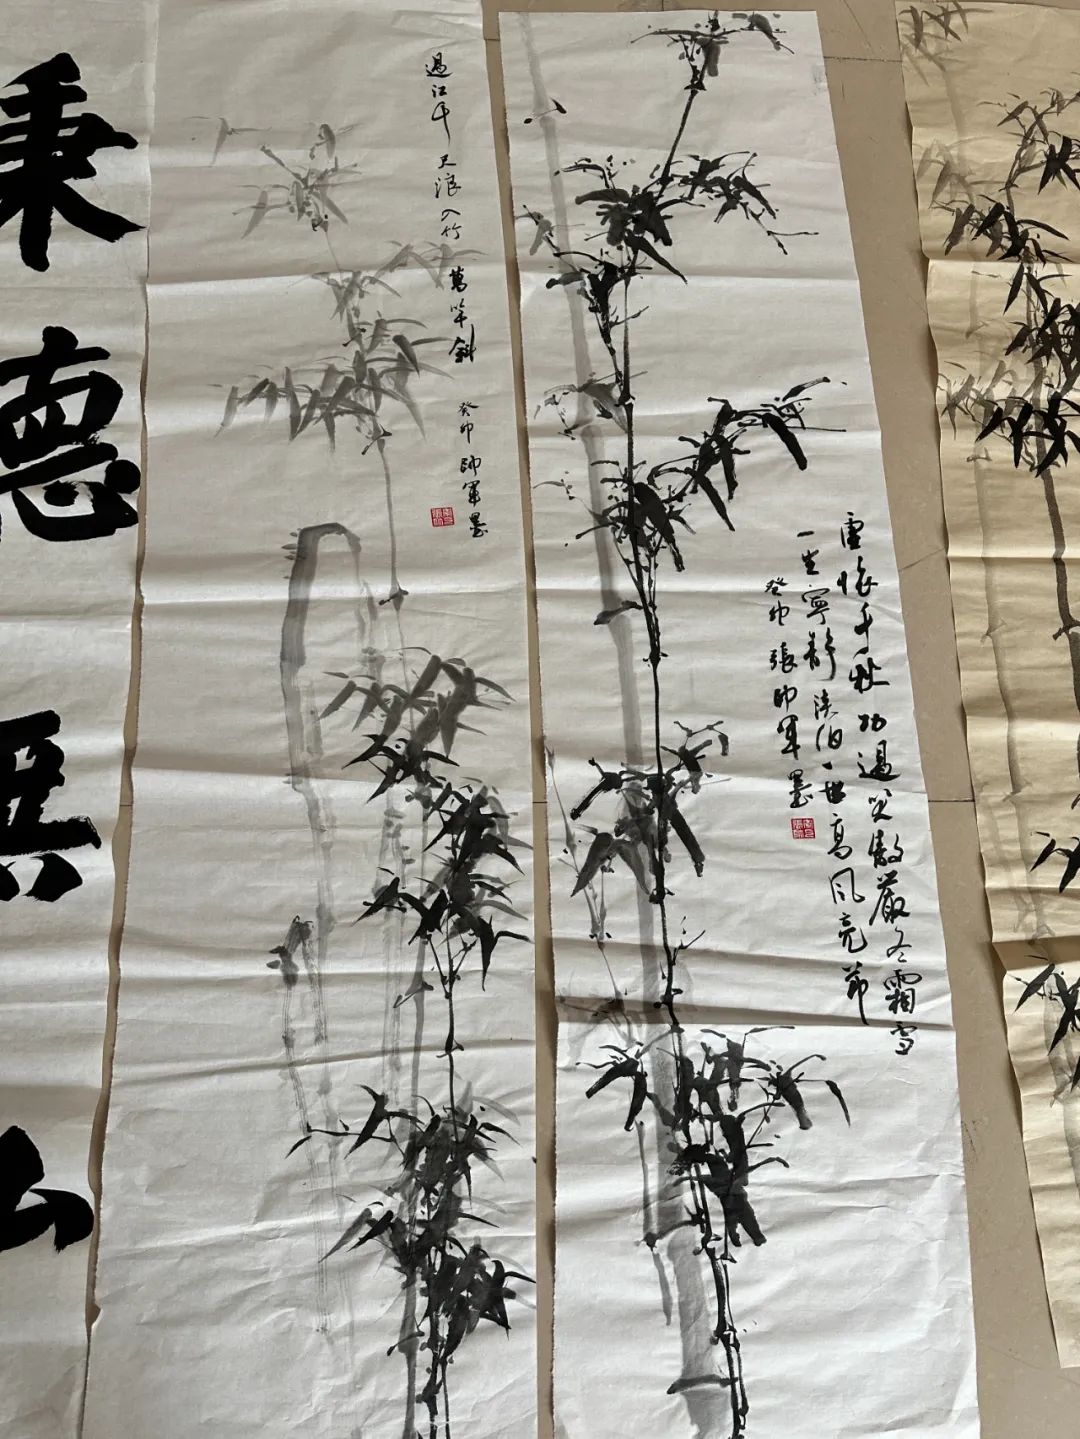 秉德無
過江千尺浪入竹萬竿斜
癸卯帥軍墨
虛懷千秋功過笑傲嚴冬霜雪
一生寧靜淡泊一世高風亮節
癸卯張帥軍墨